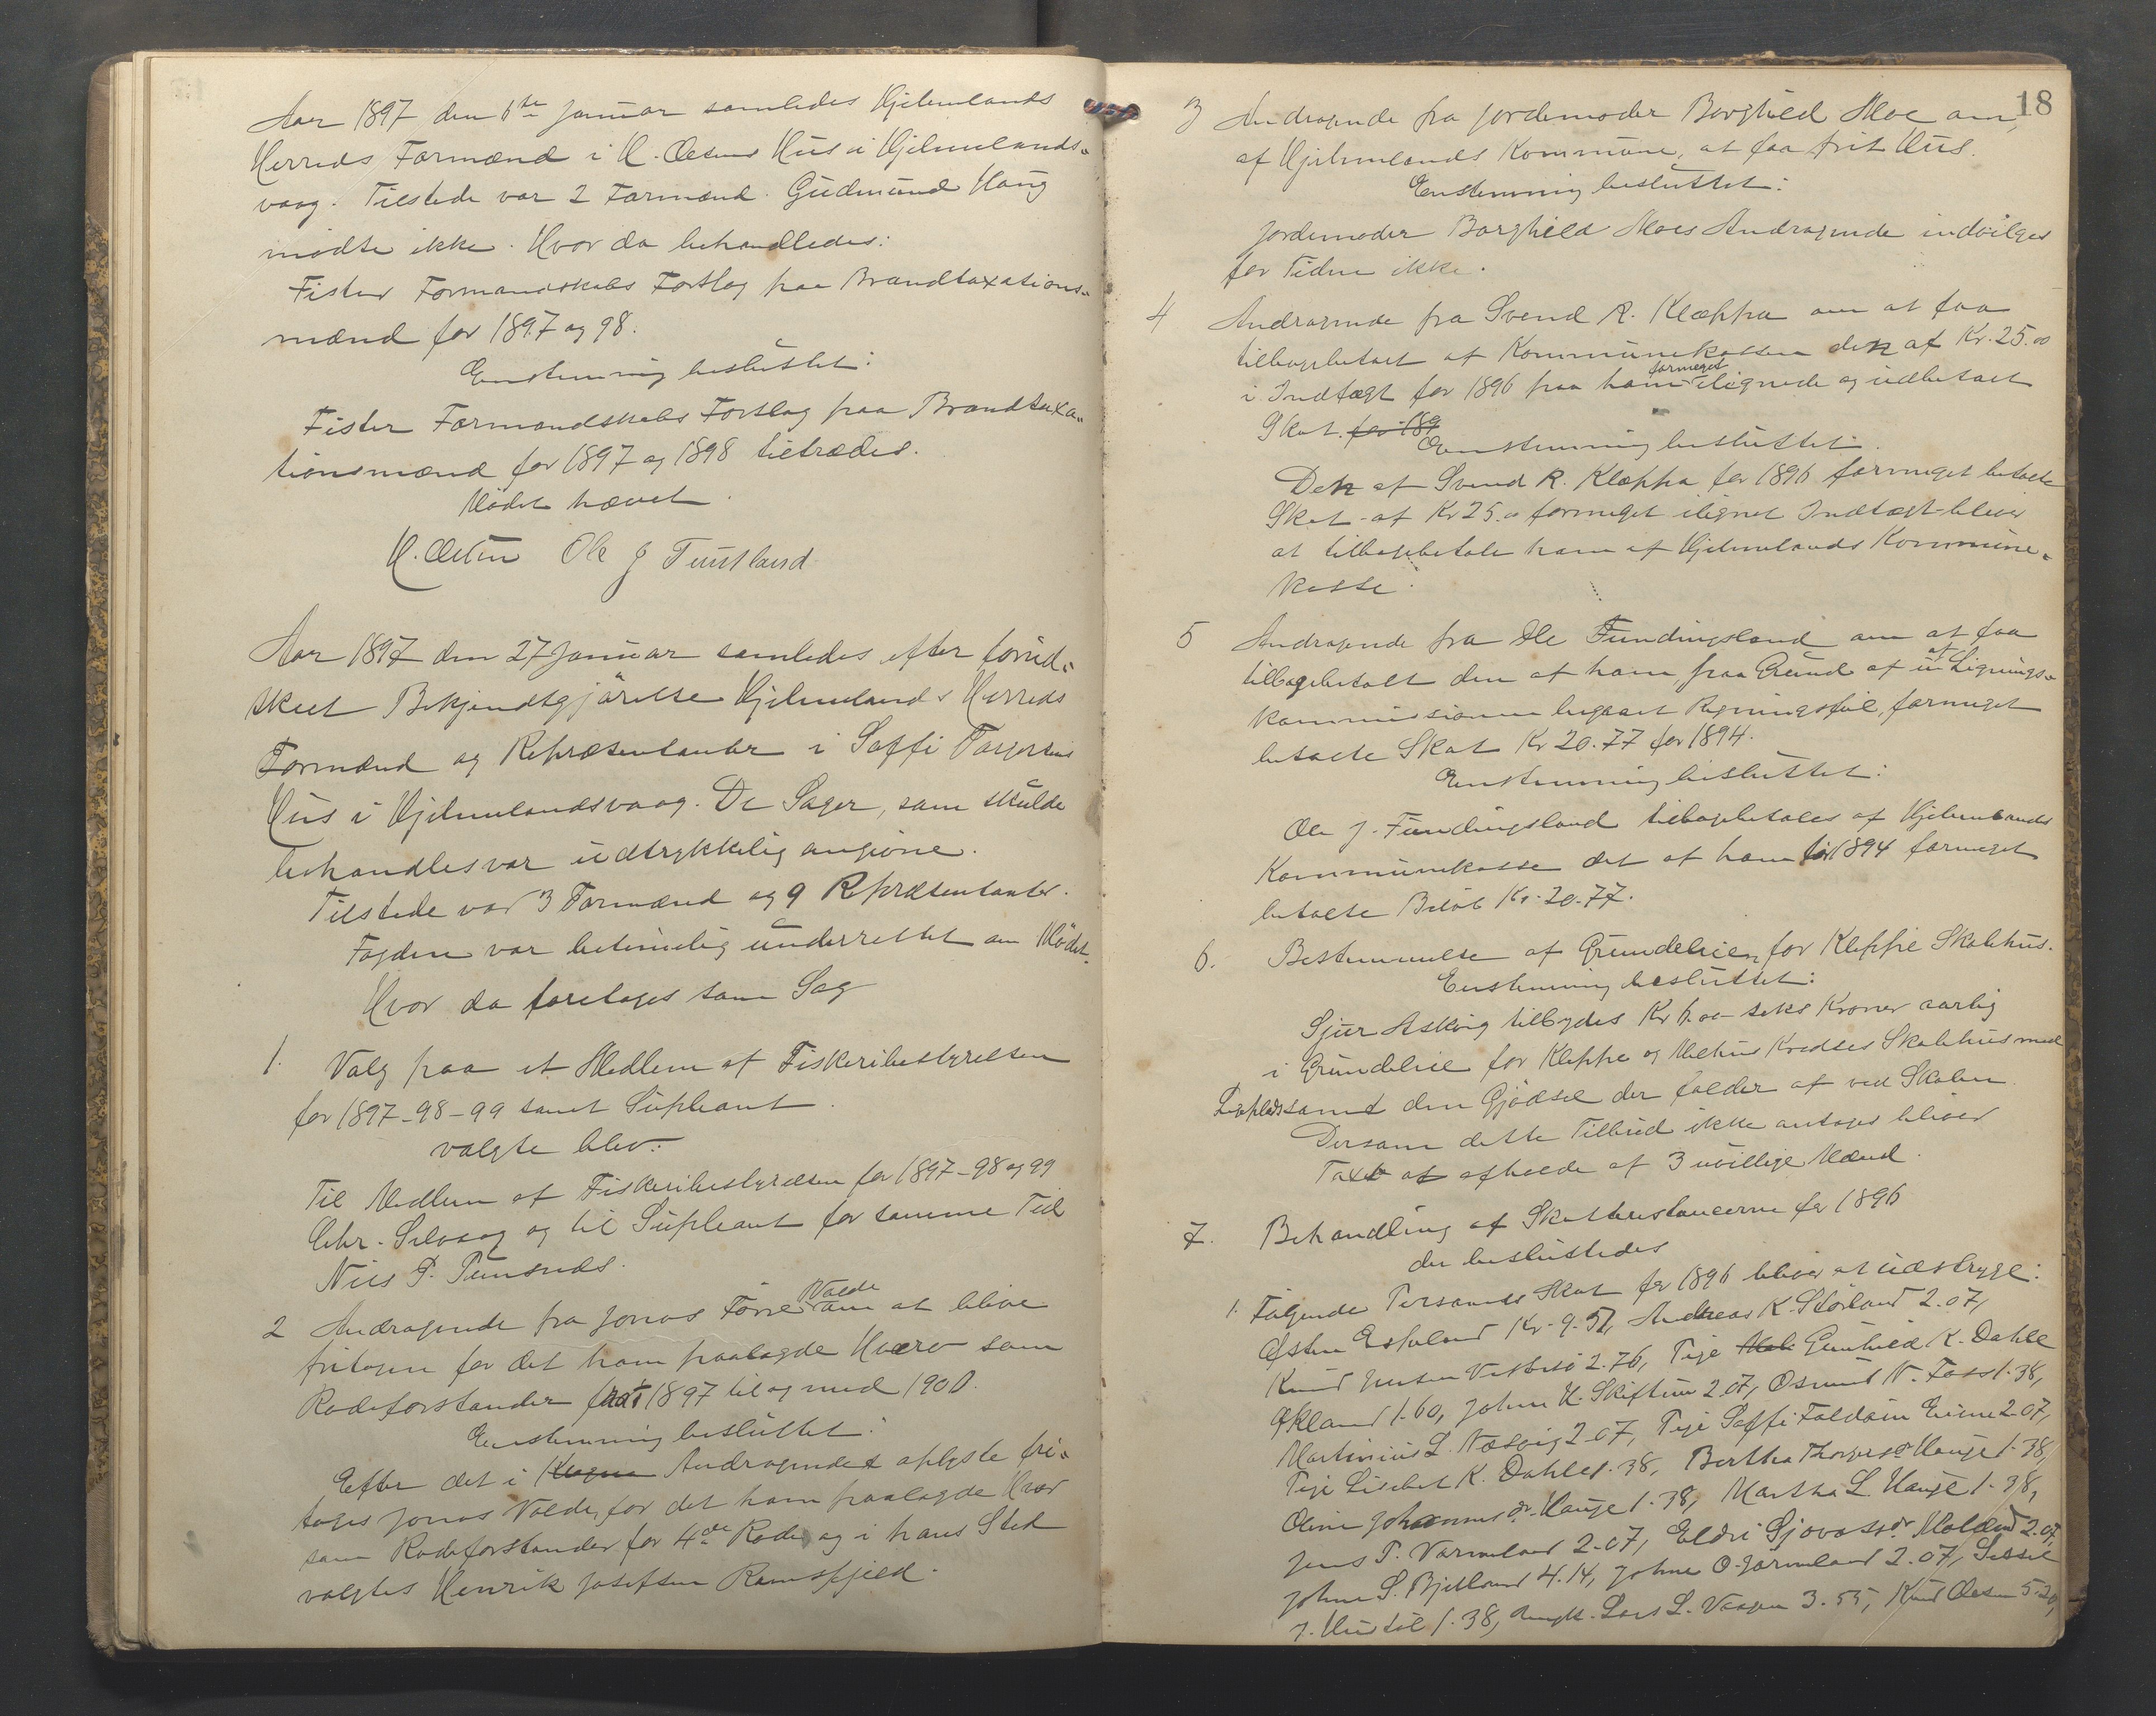 Aar 1897 den 6te Januar samledes Hjelmelands
Herreds Formænd i H. Olsens Hus i Hjelmelands-
vaag. Tilstede var 2 Formænd. Gudmund Haug
mødte ikke. Hvor da behandledes:
Fister Formandskabs Forslag paa Brandtaxations-
mænd for 1897 og 98.
Enstemmig besluttet:
Fister Formandskabs Forslag paa Brandtaxa-
tionsmænd for 1897 og 1898 tiltrædes.
Mødet hævet.
H. Olsen Ole J Tuntland
Aar 1897 den 27 Januar samledes efter forud-
skeet Bekjendtgjørelse Hjelmelands Herreds
Formænd og Repræsentanter i Soffi Torgersens
Hus i Hjelmelandsvaag. De Sager, som skulde
behandles var udtrykkelig angivne.
Tilstede var 3 Formænd og 9 Repræsentanter.
Fogden var betimelig underrettet om Mødet.
Hvor da foretoges som Sag
1. Valg paa et Medlem af Fiskeribestyrelsen
for 1897-98-99 samt Supleant.
valgte blev:
Til Medlem af Fiskeribestyrelsen for 1897-98 og 99
Chr. Selvaag og til Supleant for samme Tid
Nils P.
2 Andragende fra Jonas Førre Valde om at blive
fritagen for det ham paalagde Hverv som
Rodeforstander fra 1897 til og med 1900.
Enstemmig besluttet:
Efter det i Andragendet oplyste fri-
tages Jonas Valde, for det ham paalagde Hverv
som Rodeforstander for 4de Rode og i hans Sted
valgtes Henrik Josefsen Ramsfjeld.
18
3 Andragende fra Jordemoder Borghild Moe om,
af Hjelmelands Kommune, at faa frit Hus.
Enstemmig besluttet:
Jordemoder Borghild Moes Andragende indvilges
for Tiden ikke.
4 Andragende fra Svend R. Kleppa om at faa
tilbagebetalt af Kommunekassen den af Kr. 25.00
i Indtægt for 1896 paa ham formeget ilignede og udbetalt
Skat. for 189
Enstemmig besluttet:
Den af Svend R. Kleppa for 1896 formeget betalte
Skat af Kr 25.00 formeget ilignet Indtægt bliver
at tilbagebetale ham af Hjelmelands Kommune-
kasse.
5 Andragende fra Ole Fundingsland om at faa
tilbagebetalt den af ham paa Grund af en af Lignings-
kommissionen begaaet Regningsfeil, formeget
betalte Skat Kr 20.77 for 1894.
Enstemmig besluttet:
Ole J. Fundingsland tilbagebetales af Hjelmelands
Kommunekasse det af ham for 1894 formeget
betalte Beløb Kr. 20.77.
6. Bestemmelse af Grundeleien for Kleppe Skolehus.
Enstemmig besluttet:
Sjur Asking tilbydes Kr 6.00 seks Kroner aarlig
i Grundeleie for Kleppe og Melhus Kredses Skolehus med
samt den Gjødsel der falder af ved Skolen.
Dersom dette Tilbud ikke antages bliver
Taxt at afholde af 3 uvillige Mænd.
7. Behandling af Skatterestancerne for 1896
der besluttedes
1. Følgende Personers Skat for 1896 bliver at udstryge:
Østen Espeland Kr. 9.51, Andreas K. Storland 2.07,
Knud Jensen Vestbø 2.76, Pige Gunhild K. Dahle
Økland 1.60, John H. Skiftun 2.07, Osmund N. Foss 1.38,
Martinius L. Næsvig 2.07, Pige Soffi 2.07,
Pige Lisebet K. Dahle 1.38, Bertha Thorgersdr Hauge 1.38,
Oline Johannesdr. Hauge 1.38, Martha L. Hauge 1.38,
Jens P. Vormeland 2.07, Eldri Sjovatsdr. 2.07,
John S. Bjelland 4.14, John O. Jørmeland 2.07, Sissel
J. 1.38, Ungk. Lars L. Vaagen 3.55, Knud Olsen 5.20,